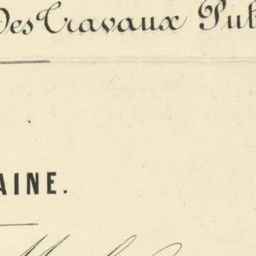 Des Travaux Pub
AINE.